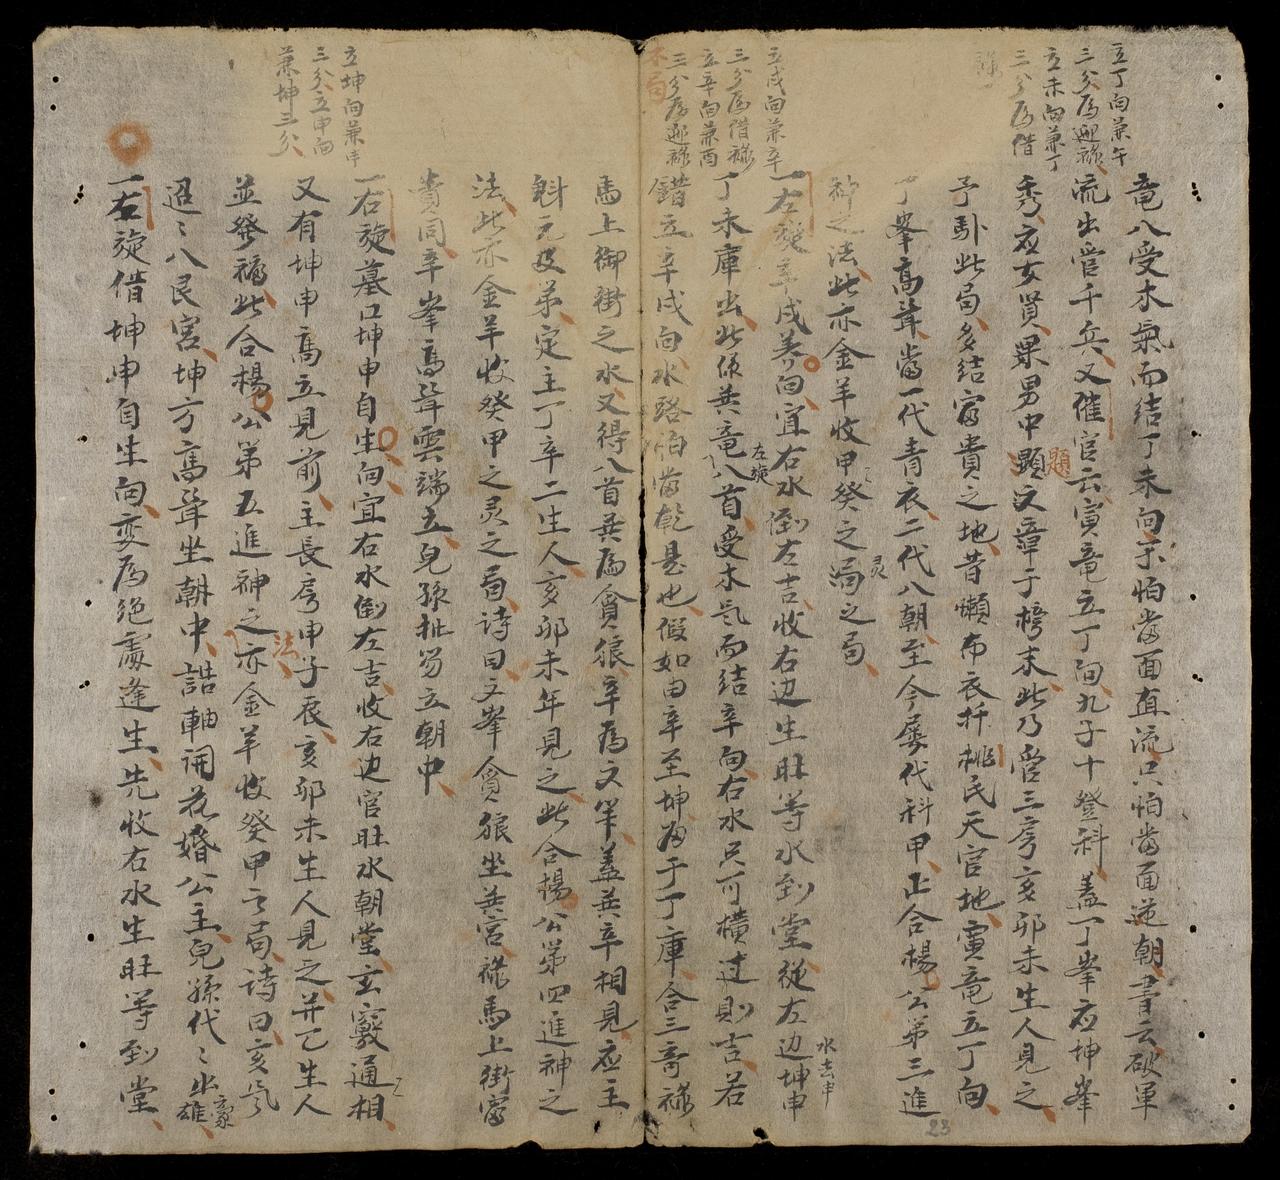 立丁向兼午
三分為迎祿
立未向兼丁
三分為借
祿
竜八受木氣而結丁未向示怕當面直流只怕當面逆朝書云破軍
流出管千兵又催官云寅竜立丁向九子十登科蓋丁峯应坤峯
秀应女賢果男中顯文章于榜末此乃管三房亥卯未生人見之
予卧此局多結富貴之地昔懶布衣扦桃民天官地寅竜立丁向
丁峯高聳當一代青衣二代八朝至今屢代科甲止合楊公第三進
神之法此亦金羊收甲癸之灵之局
立戌向兼辛
三分為借祿
立辛向兼酉
三分為迎祿
一左旋辛戌养向宜右水倒左吉收右边生旺等水到堂從左边坤申
水去申
丁未庫出此係兼竜八首受木気而結辛向右水只可橫过則吉若
左旋
錯立辛戌向水路怕當乾是也假如由辛至坤為于丁庫合三奇祿
馬上御街之水又得八首兼為貪狼辛為文筆蓋兼辛相見应主
魁元及第定主丁辛二生人亥卯未年見之此合楊公第四進神之
法此亦金羊收癸甲之灵之局詩曰文峯貪狼坐兼宮祿馬上街富
貴同辛峯高聳雲端立皃孫批笏立朝中
立坤向兼申
三分立申向
兼坤三分
一右旋墓口坤申自生向宜右水倒左吉收右边官旺水朝堂玄竅通相
又有坤申高立見前主長房申子辰亥卯未生人見之并乙生人
並發福此合楊公第五進神之法亦金羊收癸甲之局詩曰亥気
迢々八艮宮坤方高聳坐朝中誥軸詞花婚公主皃孫代々出豪雄
一右旋借坤申自生向变為绝處逢生先收右水生旺等到堂
23